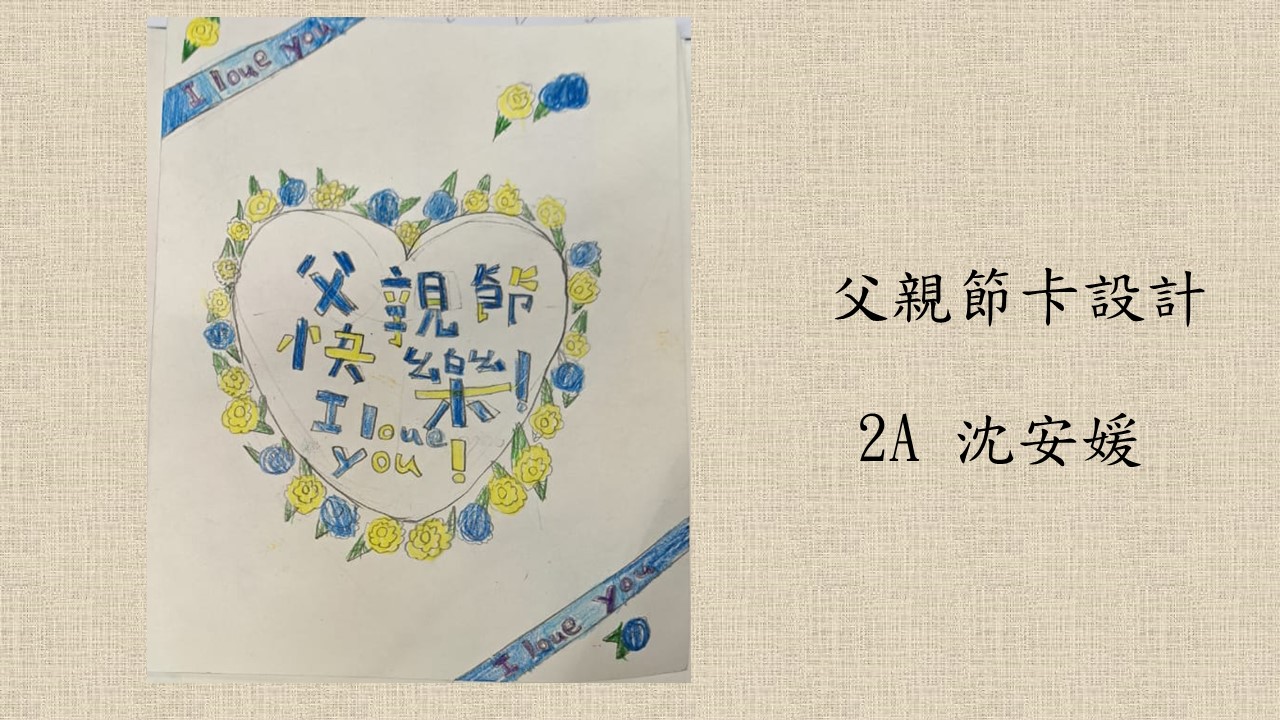 I love you
父親節
快樂!
I love
you!
I love you
父親節卡設計
2A 沈安媛